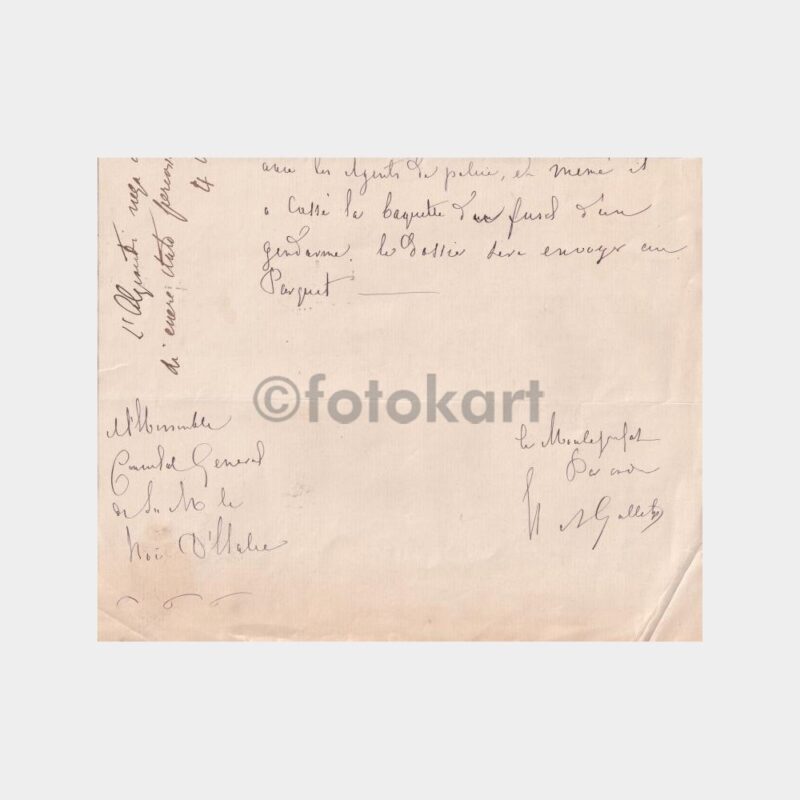 avec les Agents de police, et même il
a Cassé la baguette d'un fusil d'un
gendarme. le Dossier sera envoyer au
Parquet
L'Algranti nega
di essere stato
©fotokart
A l'Honorable
Consulat General
de Sa M le
Roi D'Italie
le Moustapha
Par ordre
A Gallet